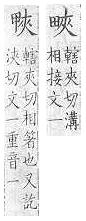 㽠
轄夾切溝
相接文一
轄夾切相箸也又訖
浹切文一重音一